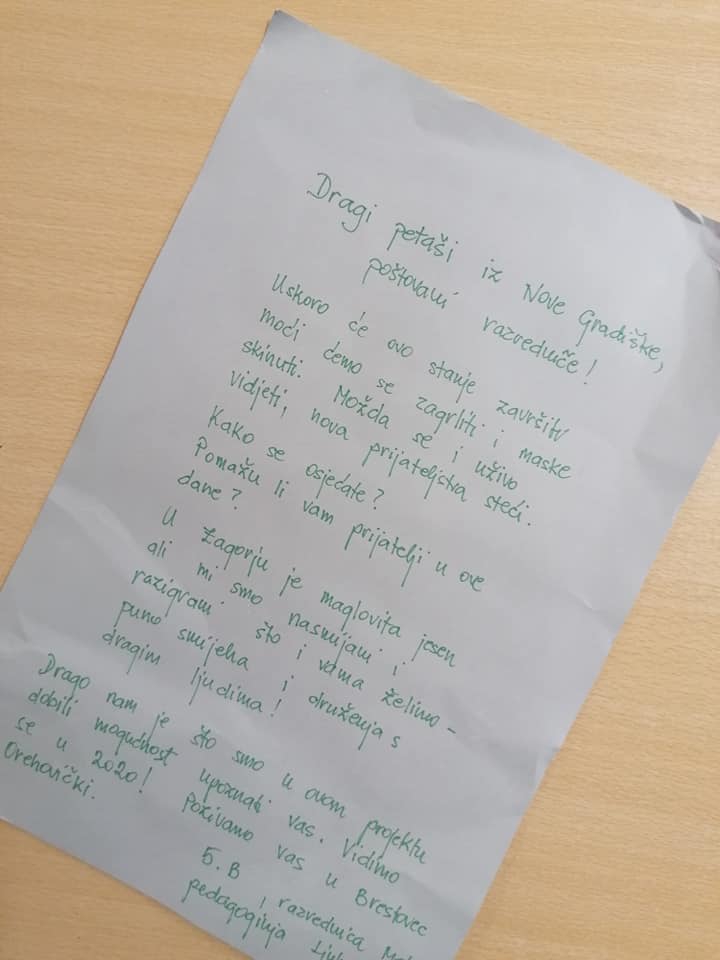 Dragi petaši iz Nove Gradiške,
poštovani razredniče!
Uskoro će ovo stanje završiti
moći ćemo se zagrliti i maske
skinuti. Možda se i uživo
vidjeti, nova prijateljstva steći.
Kako se osjećate?
Pomažu li vam prijatelji u ove
dane?
U Zagorju je maglovita jesen
ali mi smo nasmijani i
razigrani što i vama želimo -
puno smijeha i druženja s
dragim ljudima!
Drago nam je što smo u ovom projektu
dobili mogućnost upoznati vas. Vidimo
se u 2020! Pozivamo vas u Brestovec
Orehovički.
5.B, razrednica
pedagoginja